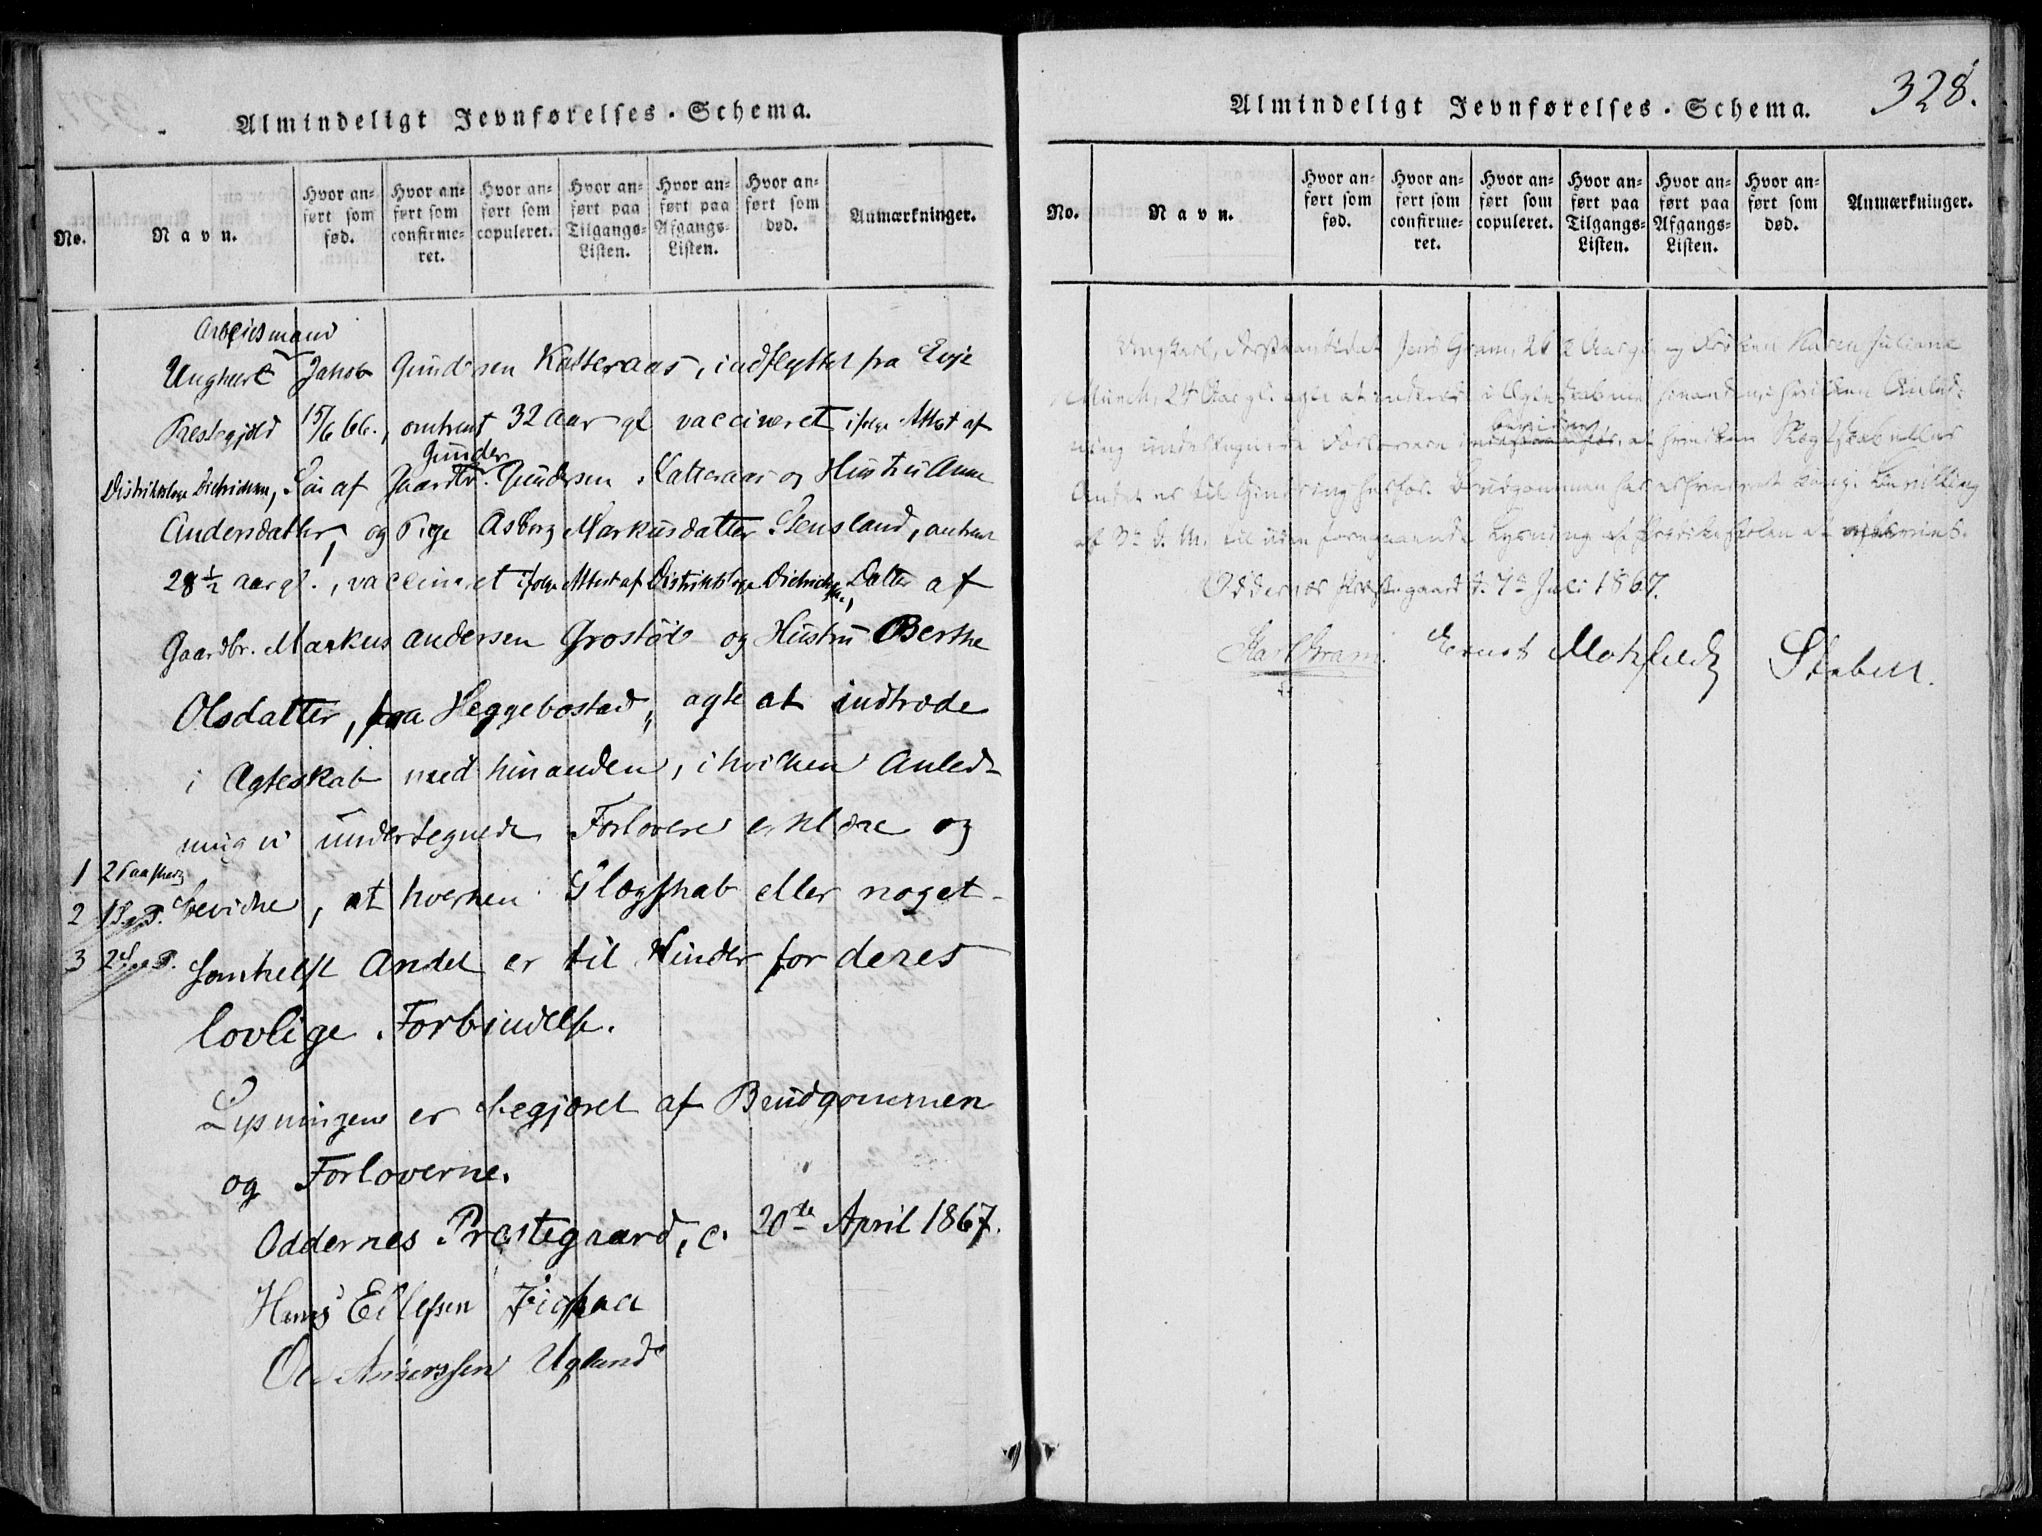 Almindeligt Jevnførelses-Schema.
No.
Navn.
Hvor anført som fød.
Hvor anført som confirmeret.
Hvor anført som copuleret.
Hvor anført paa Tilgangs-Listen.
Hvor anført paa Afgangs-Listen.
Hvor anført som død.
Anmærkninger.
Arbeidsmand
Ungkarl Jakob Gundersen Katteraas, indflyttet fra Evje
Prestegjæld 15/6 66., omtrent 32 Aar gl. vaccineret ifølge Attest af
Gunder
Distriktslæge Dietrichsen, Søn af Gaardbr. Gundersen Katteraas og Hustru Anne
Andersdatter, og Pige Asborg Markusdatter Sensland, omtrent
28 1/2 aar gl., vaccineret ifølge Attest af Distriktslæge Dietrichsen, Datter af
Gaardbr. Markus Andersen Grostøl og Hustru Berthe
Olsdatter, fra Heggebostad, agte at indtræde
i Ægteskab med hinanden, i hvilken Anled-
ning vi undertegnede Forlovere erklære og
1 2 Paaskedg
bevidne, at hverken Slægskab eller noget-
2 1 S. e. P.
somhelst Andet er til Hinder for deres
3 2 S. e. P.
lovlige Forbindelse.
Lysningen er begjæret af Brudgommen
og Forloverne.
Oddernes Præstegaard, d. 20de April 1867.
Hans Ellefsen
Ole Anderssen Ugland
328.
Almindeligt Jevnførelses-Schema.
No.
Navn.
Hvor anført som fød.
Hvor anført som confirmeret.
Hvor anført som copuleret.
Hvor anført paa Tilgangs-Listen.
Hvor anført paa Afgangs-Listen.
Hvor anført som død.
Anmærkninger.
Ungkarl, Jens Gram, 26 1/2 Aar gl. og Frøken Karen Juliane
Münch, 24 Aar gl. agte at indtræde i Ægteskab med hinanden, i hvilken Anled-
bevidne
ning undertegnede Forlovere at hverken Slægtskab eller
Andet er til Hindring herfor. Brudgommen har erhvervet Kongl. Bevilling
af til uden foregaaende Lysning af Prædikestolen at
Oddernes Præstegaard d. 7de Juli 1867.
Gram. Ernst Motzfeldt